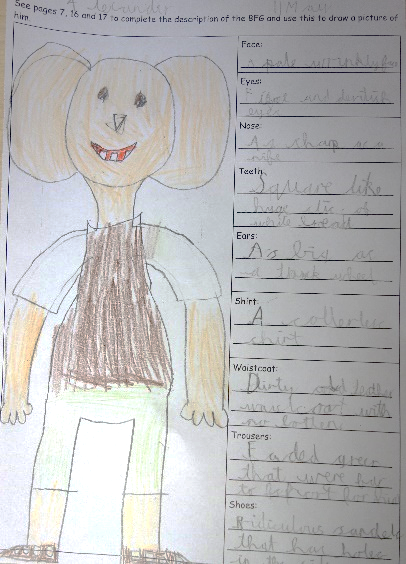 Alexander 11 May
See pages 7, 16 and 17 to complete the description of the BFG and use this to draw a picture of
him.
Face:
a pale wrinkly face
Eyes:
Fierce and devilish
eyes
Nose:
As sharp as a
nife
Teeth
Square like
huge slic of
white bread
Ears:
As big as
a truck wheel
Shirt:
A collerless
shirt
Waistcoat:
Dirty old lether
waistcoat with
no bottens
Trousers:
Faded green
that were far
to short for his
Shoes:
Ridiculous sandels
that has holes
in the